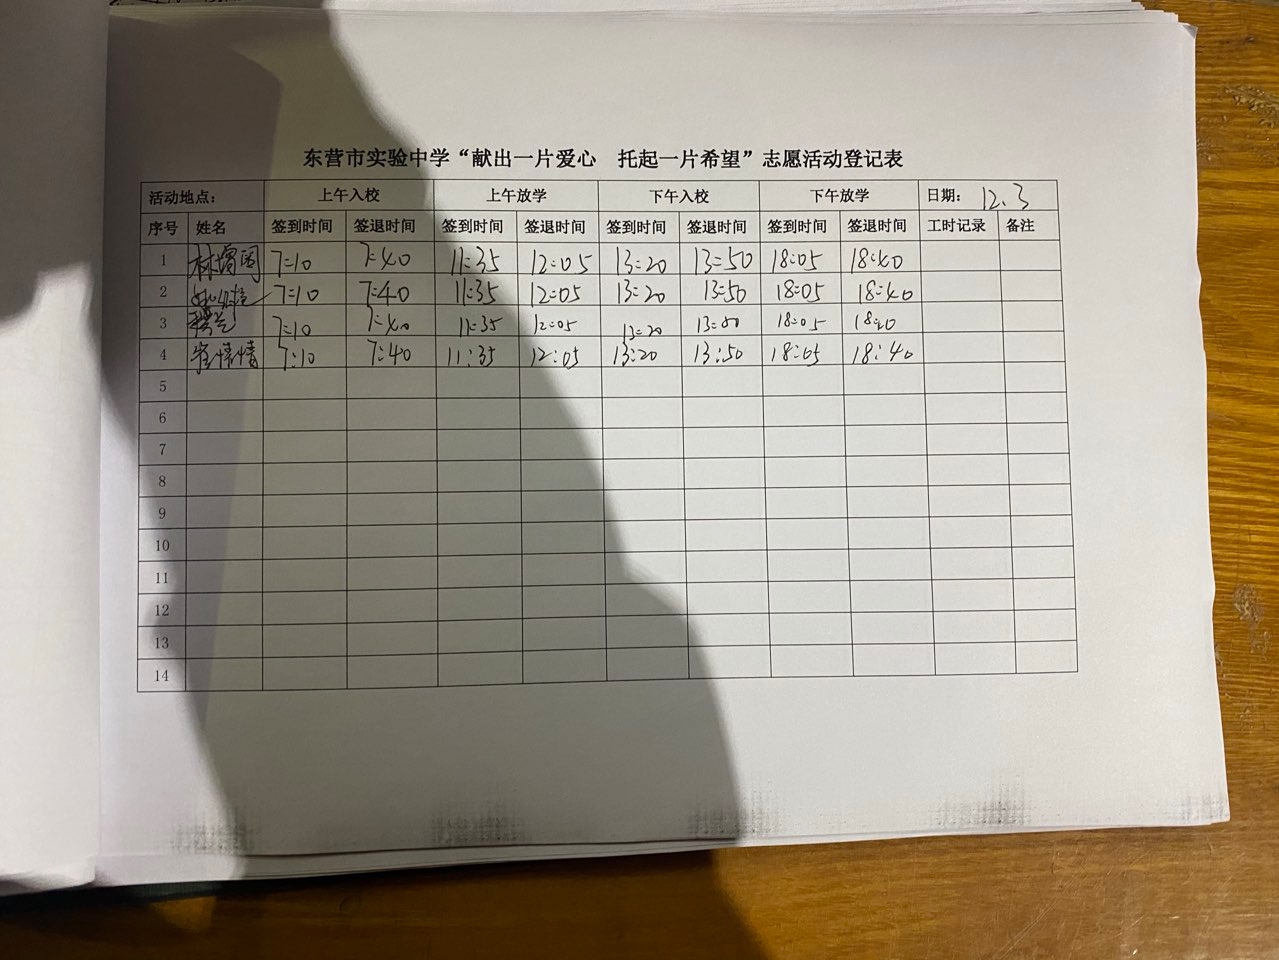 东营市实验中学“献出一片爱心 托起一片希望”志愿活动登记表
活动地点： 上午入校 上午放学 下午入校 下午放学 日期： 12.3
序号 姓名 签到时间 签退时间 签到时间 签退时间 签到时间 签退时间 签到时间 签退时间 工时记录 备注
1 7:10 7:40 11:35 12:05 13:20 13:50 18:05 18:40
2 7:10 7:40 11:35 12:05 13:20 13:50 18:05 18:40
3 7:10 7:40 11:35 12:05 13:20 13:50 18:05
4 7:10 7:40 11:35 12:05 13:20 13:50 18:05 18:40
5
6
7
8
9
10
11
12
13
14